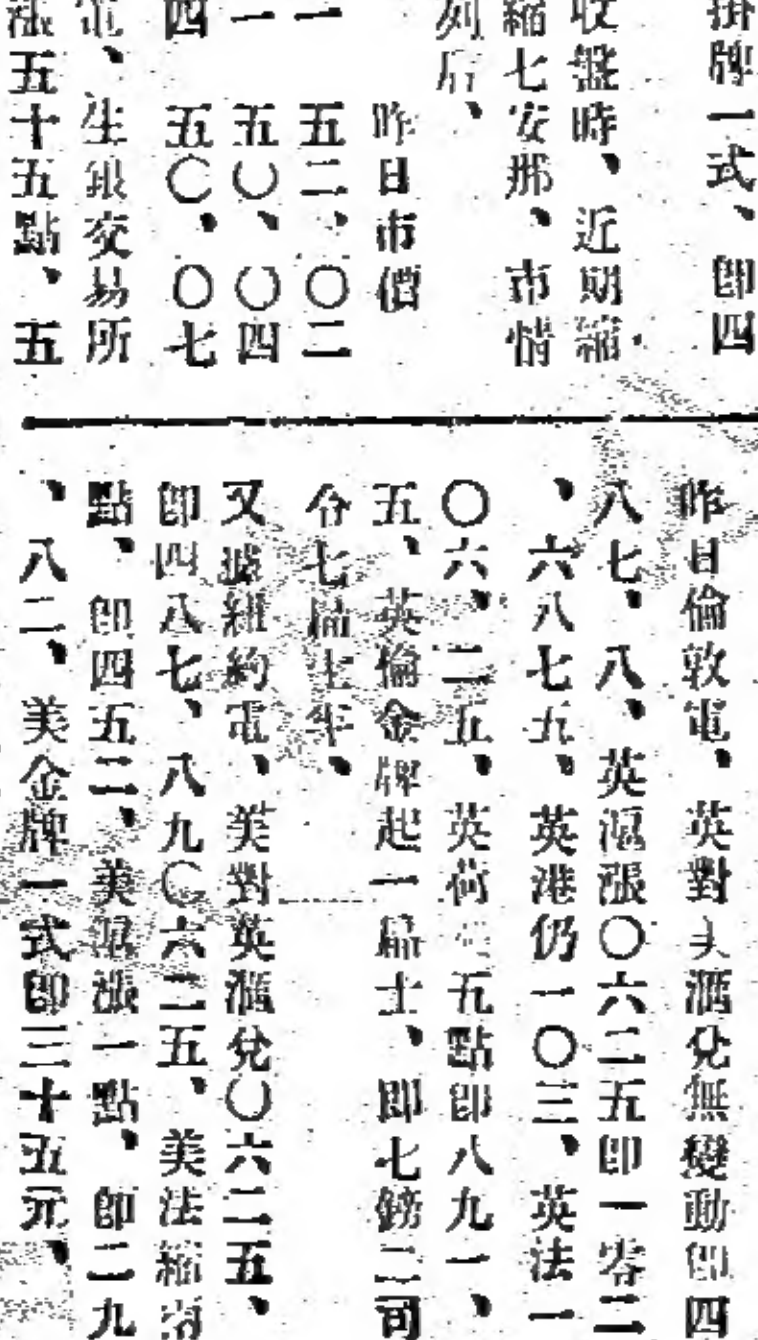 掛牌一式、即四
收盤時、近期縮
縮七安那、市情
列后、
昨日市價
一　五二、〇二
一　五〇、〇四
四　五〇、〇七
電、生銀交易所
漲五十五點、五
昨日倫敦電、英對匯兌無變動即四
八七、八、英滬漲〇六二五即一零二
、六八七五、英港仍一〇三、英法一
〇六、二五、英荷五點即八九一、
五、英倫金牌起一扁士、即七鎊二司
令七扁士半、
又據紐約電、美對英滙兌〇六二五、
即四八七、八九〇六二五、美法縮
點、即四五二、美滬漲一點、即二九
、八二、美金牌一式即三十五元、